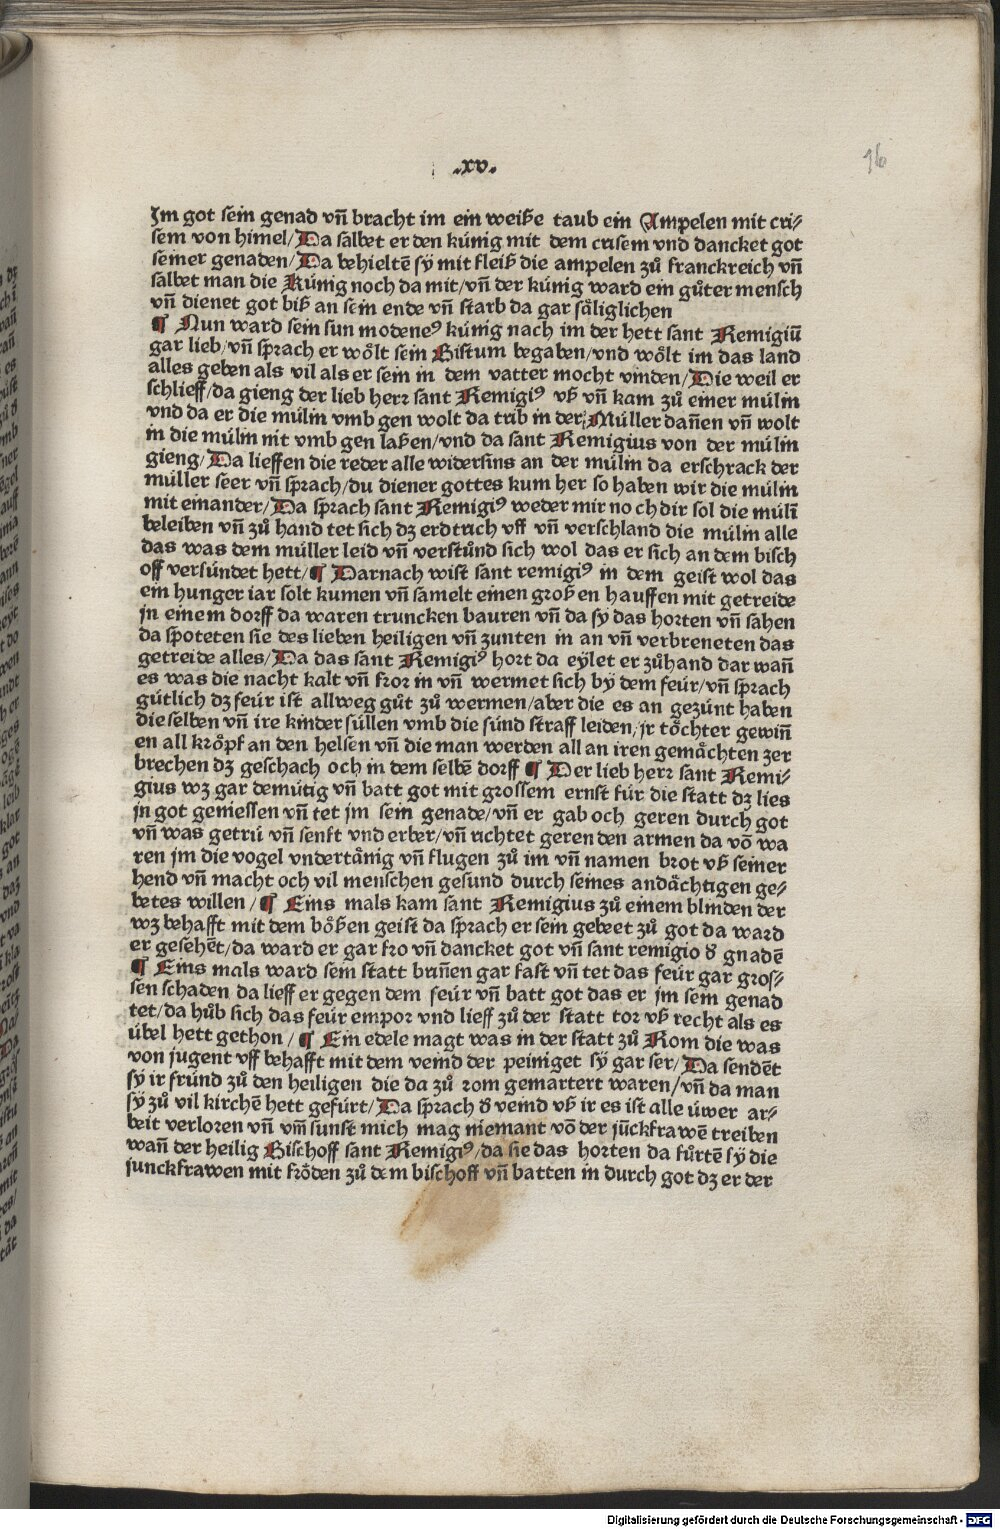 .xv.
96
Im got sein genad vn̄ bracht im ein weiße taub ein Ampelen mit cri⸗
sem von himel/Da salbet er den künig mit dem crisem vnd dancket got
seiner genaden/Da behieltē sÿ mit fleiß die ampelen zů franckreich vn̄
salbet man die Künig noch da mit/vn̄ der künig ward ein gůter mensch
vn̄ dienet got biß an sein ende vn̄ starb da gar såliglichen
¶ Nun ward sein sun modeneꝰ künig nach im der hett sant Remigiū
gar lieb/vn̄ sprach er wo̊lt sein Bistum begaben/vnd wo̊lt im das land
alles geben als vil als er sein in dem vatter mocht vinden/Die weil er
schlieff/da gieng der lieb herr sant Remigiꝰ vß vn̄ kam zů einer mülin
vnd da er die mülin vmb gen wolt da trib in der Müller dan̄en vn̄ wolt
in die mülin nit vmb gen laßen/vnd da sant Remigius von der mülin
gieng/Da lieffen die reder alle widersins an der mülin da erschrack der
müller seer vn̄ sprach/du diener gottes kum her so haben wir die mülin
mit einander/Da sprach sant Remigiꝰ weder mir noch dir sol die mülī
beleiben vn̄ zů hand tet sich dz erdtrich vff vn̄ verschland die mülin alle
das was dem müller leid vn̄ verstůnd sich wol das er sich an dem bisch
off versündet hett/¶ Darnach wist sant remigiꝰ in dem geist wol das
ein hunger iar solt kumen vn̄ samelt einen großen hauffen mit getreide
jn einem dorff da waren truncken bauren vn̄ da sÿ das horten vn̄ sahen
da spoteten sie des lieben heiligen vn̄ zunten in an vn̄ verbreneten das
getreide alles/Da das sant Remigiꝰ hort da eÿlet er zůhand dar wan̄
es was die nacht kalt vn̄ fror in vn̄ wermet sich bÿ dem feür/vn̄ sprach
gütlich dz feür ist allweg gůt zů wermen/aber die es an gezünt haben
die selben vn̄ ire kinder süllen vmb die sünd straff leiden/jr to̊chter gewin̄
en all kro̊pf an den helsen vn̄ die man werden all an iren gemåchten zer
brechen dz geschach och in dem selbē dorff ¶ Der lieb herr sant Remi⸗
gius wz gar demütig vn̄ batt got mit grossem ernst für die statt dz lies
jn got geniessen vn̄ tet jm sein genade/vn̄ er gab och geren durch got
vn̄ was getrü vn̄ senft vnd erber/vn̄ richtet geren den armen da vō wa
ren jm die vogel vndertånig vn̄ flugen zů im vn̄ namen brot vß seiner
hend vn̄ macht och vil menschen gesund durch seines andåchtigen ge⸗
betes willen/¶ Eins mals kam sant Remigius zů einem blinden der
wz behafft mit dem bo̊ßen geist da sprach er sein gebeet zů got da ward
er gesehēt/da ward er gar fro vn̄ dancket got vn̄ sant remigio ꝺ̕ gnadē
¶ Eins mals ward sein statt brin̄en gar fast vn̄ tet das feür gar gros⸗
sen schaden da lieff er gegen dem feür vn̄ batt got das er jm sein genad
tet/da hůb sich das feür empor vnd lieff zů der statt tor vß recht als es
übel hett gethon/¶ Ein edele magt was in der statt zů Rom die was
von jugent vff behafft mit dem veind der peiniget sÿ gar ser/Da sendēt
sÿ ir fründ zů den heiligen die da zů rom gemartert waren/vn̄ da man
sÿ zů vil kirchē hett gefürt/Da sprach ꝺ̕ veind vß ir es ist alle üwer ar⸗
beit verloren vn̄ vm̄ sunst mich mag niemant vō der jūckfrawē treiben
wan̄ der heilig Bischoff sant Remigiꝰ/da sie das horten da fůrtē sÿ die
junckfrawen mit fro̊den zů dem bischoff vn̄ batten in durch got dz er der
Digitalisierung gefördert durch die Deutsche Forschungsgemeinschaft - DFG